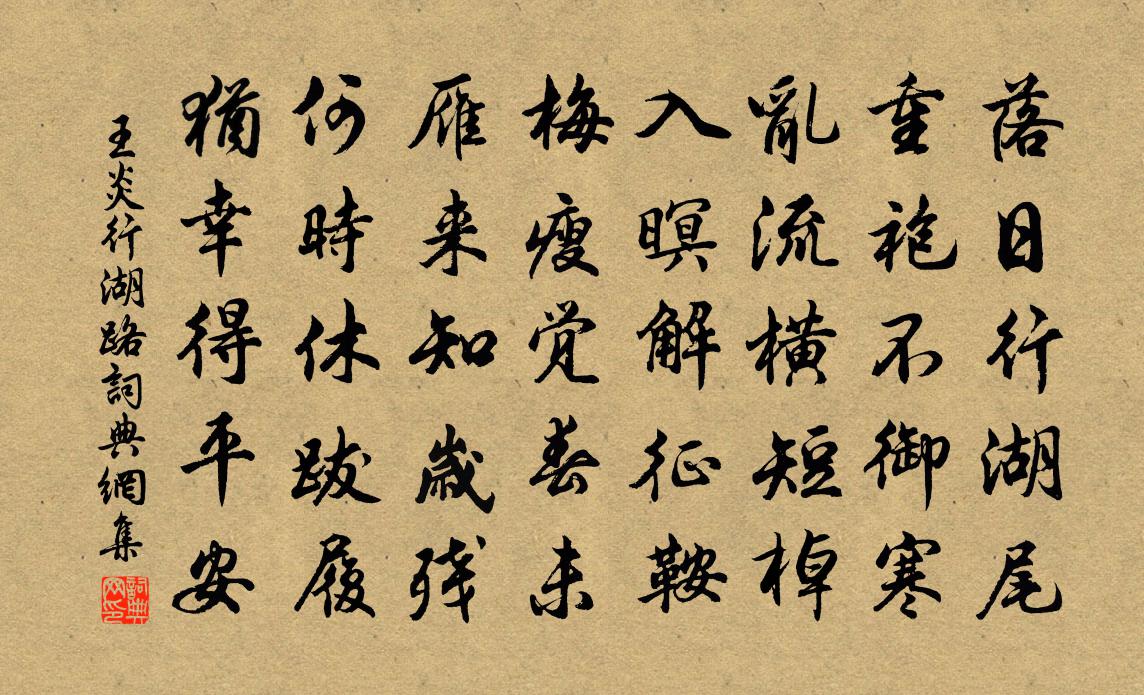 落日行湖尾
重袍不御寒
亂流横短棹
入暝解征鞍
梅瘦覚春未
雁来知歲残
何時休跋履
猶幸得平安
王炎行湖路詞典網集
詞典网印